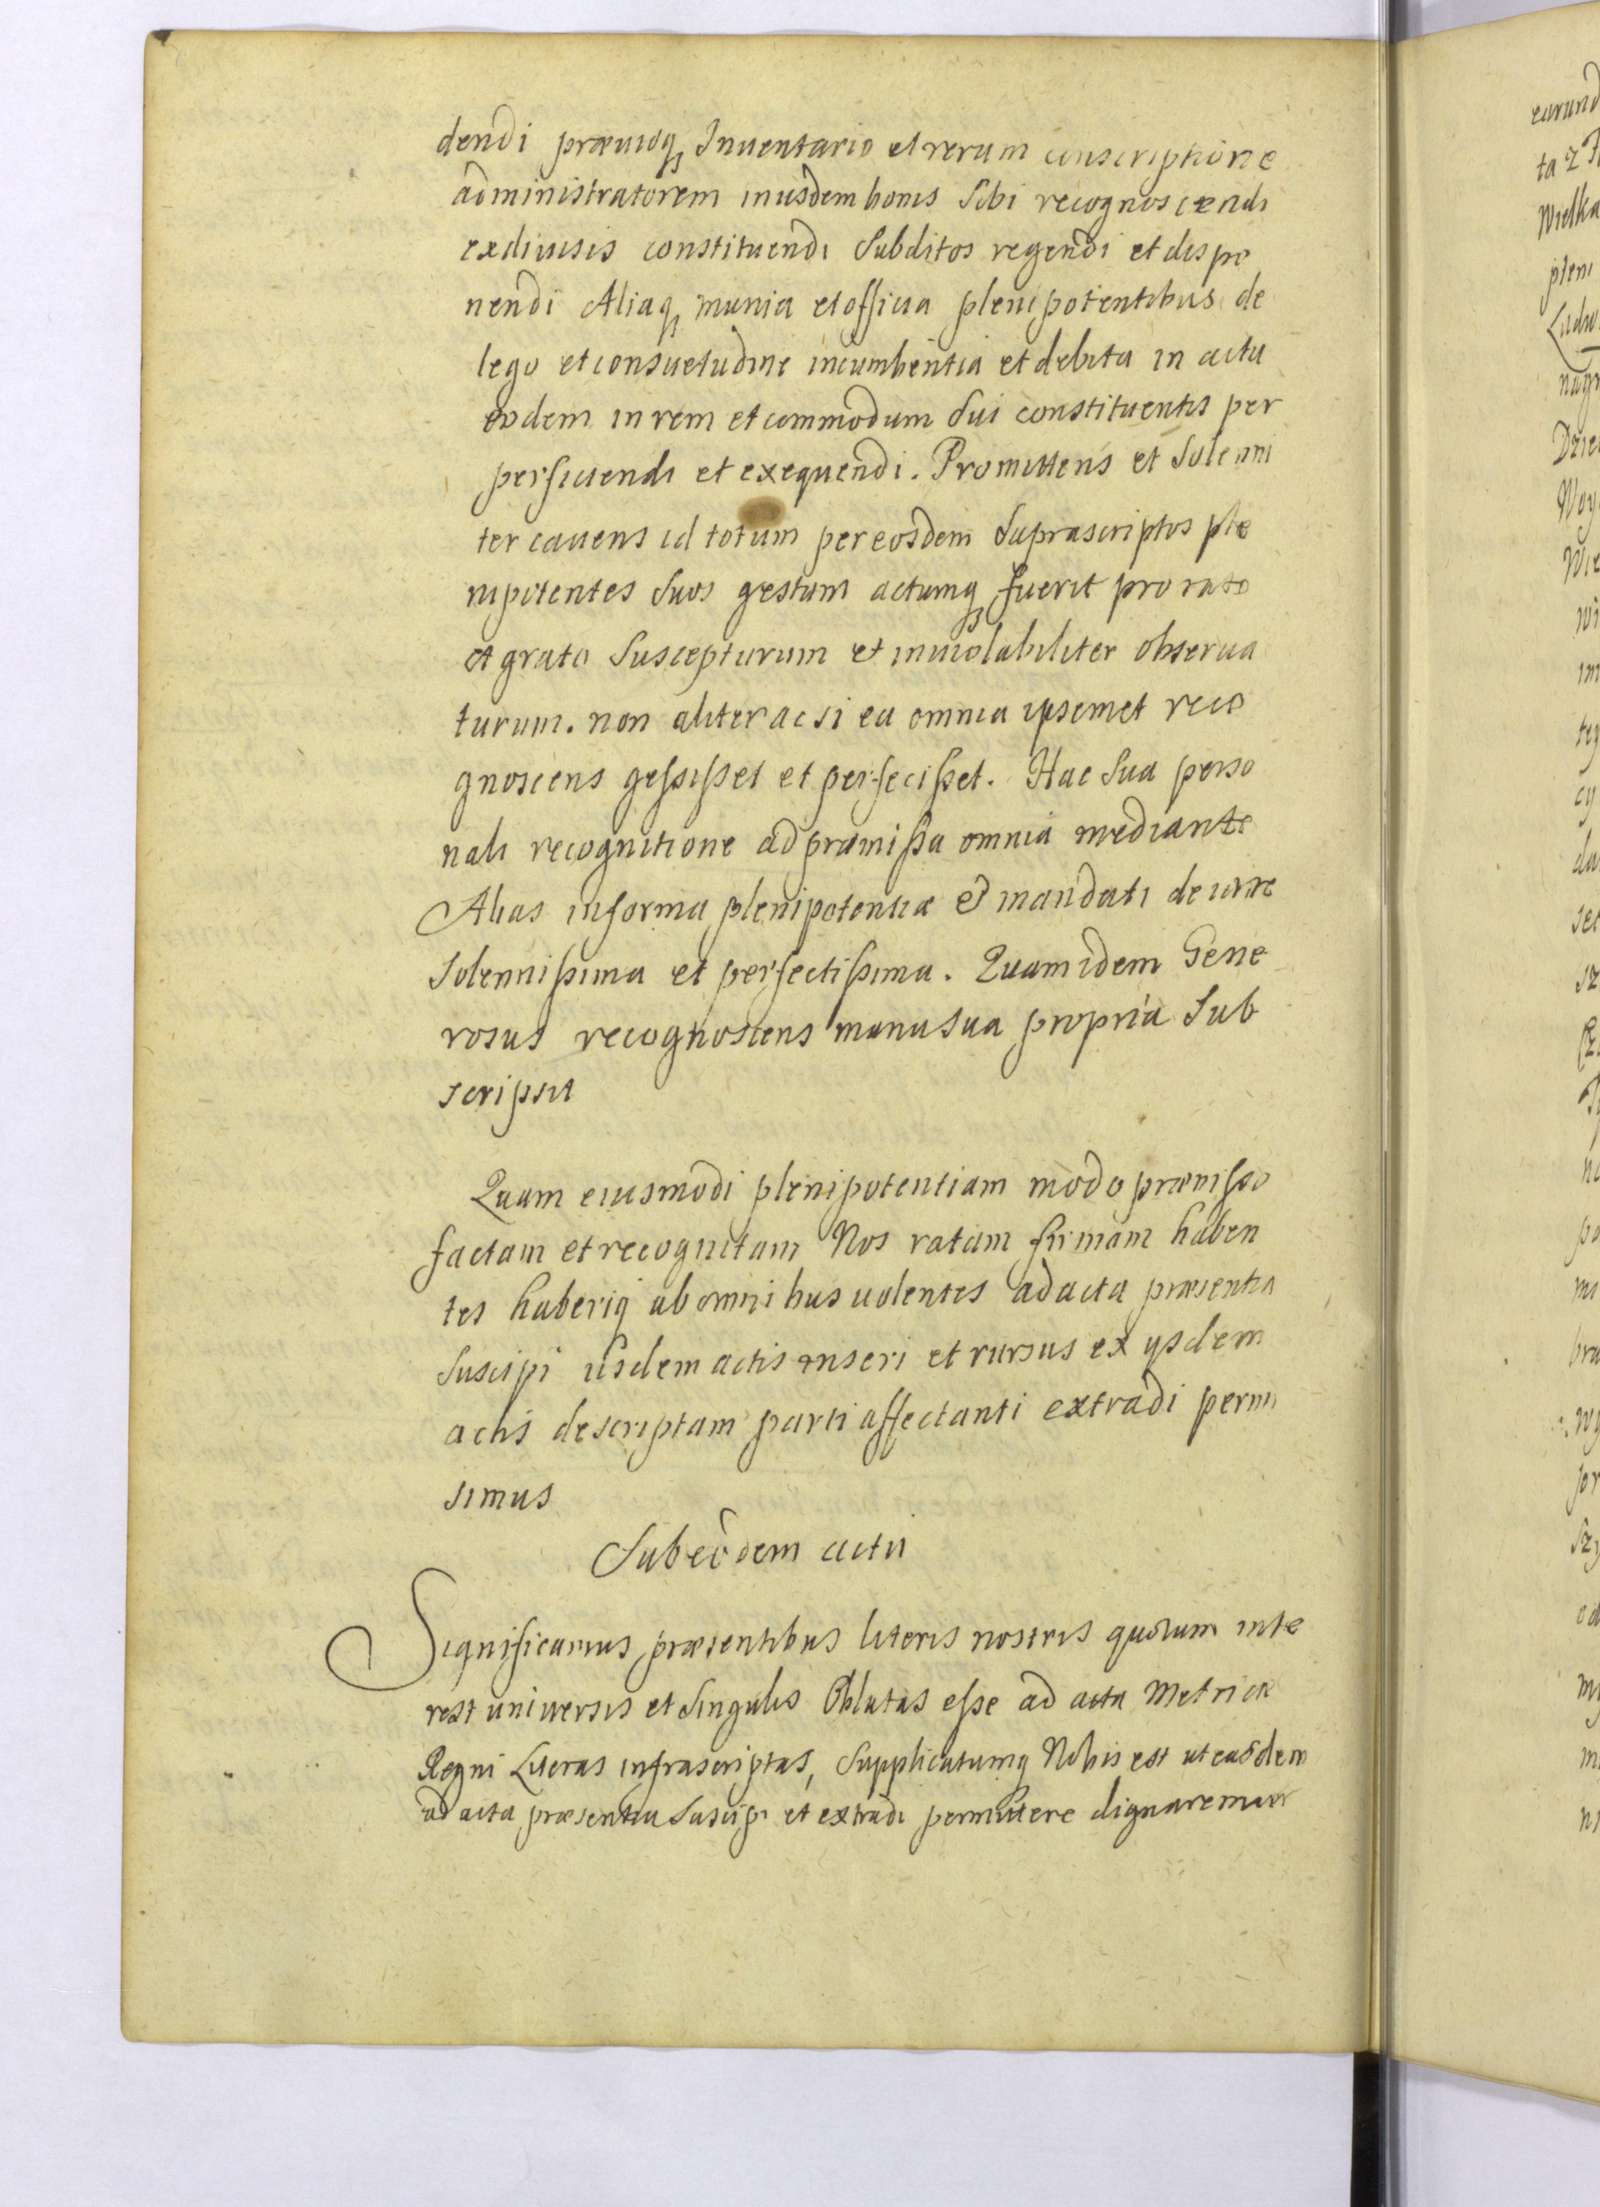 dendi præuioq Inuentario et rerum conscriptione
administratorem in iisdem bonis Sibi recognoscendi
ex diuisis constituendi Subditos regendi et dispo
nendi Aliaq munia et officia plenipotentibus de
lege et consuetudine incumbentia et debita in actu
eodem in rem et commodum Sui constituentis per
perficiendi et exequendi. Promittens et Solenni
ter cauens id totum per eosdem Suprascriptos ple
nipotentes Suos gestum actumq fuerit pro rato
et grato Suscepturum et inuiolabiliter obserua
turum. non aliter ac si ea omnia ipsemet reco
gnoscens gessisset et perfecisset. Hac Sua perso
nali recognitione ad præmissa omnia mediante
Alias in forma plenipotentiæ et mandati de iure
Solennissima et perfectissima. Quam idem Gene
rosus recognoscens manu Sua propria Sub
scripsit
Quam eiusmodi plenipotentiam modo præmisso
factam et recognitam Nos ratam firmam haben
tes haberiq ab omnibus uolentes ad acta præsentia
Suscipi iisdem actis inseri et rursus ex ysdem
actis descriptam parti affectanti extradi permi
simus
Sub eodem actu
Significamus præsentibus literis nostris quorum inte
rest universis et Singulis Oblatas esse ad acta Metricæ
Regni Literas infrascriptas, Supplicatumq Nobis est ut easdem
ad acta præsentia Suscipi et extradi permittere dignaremur